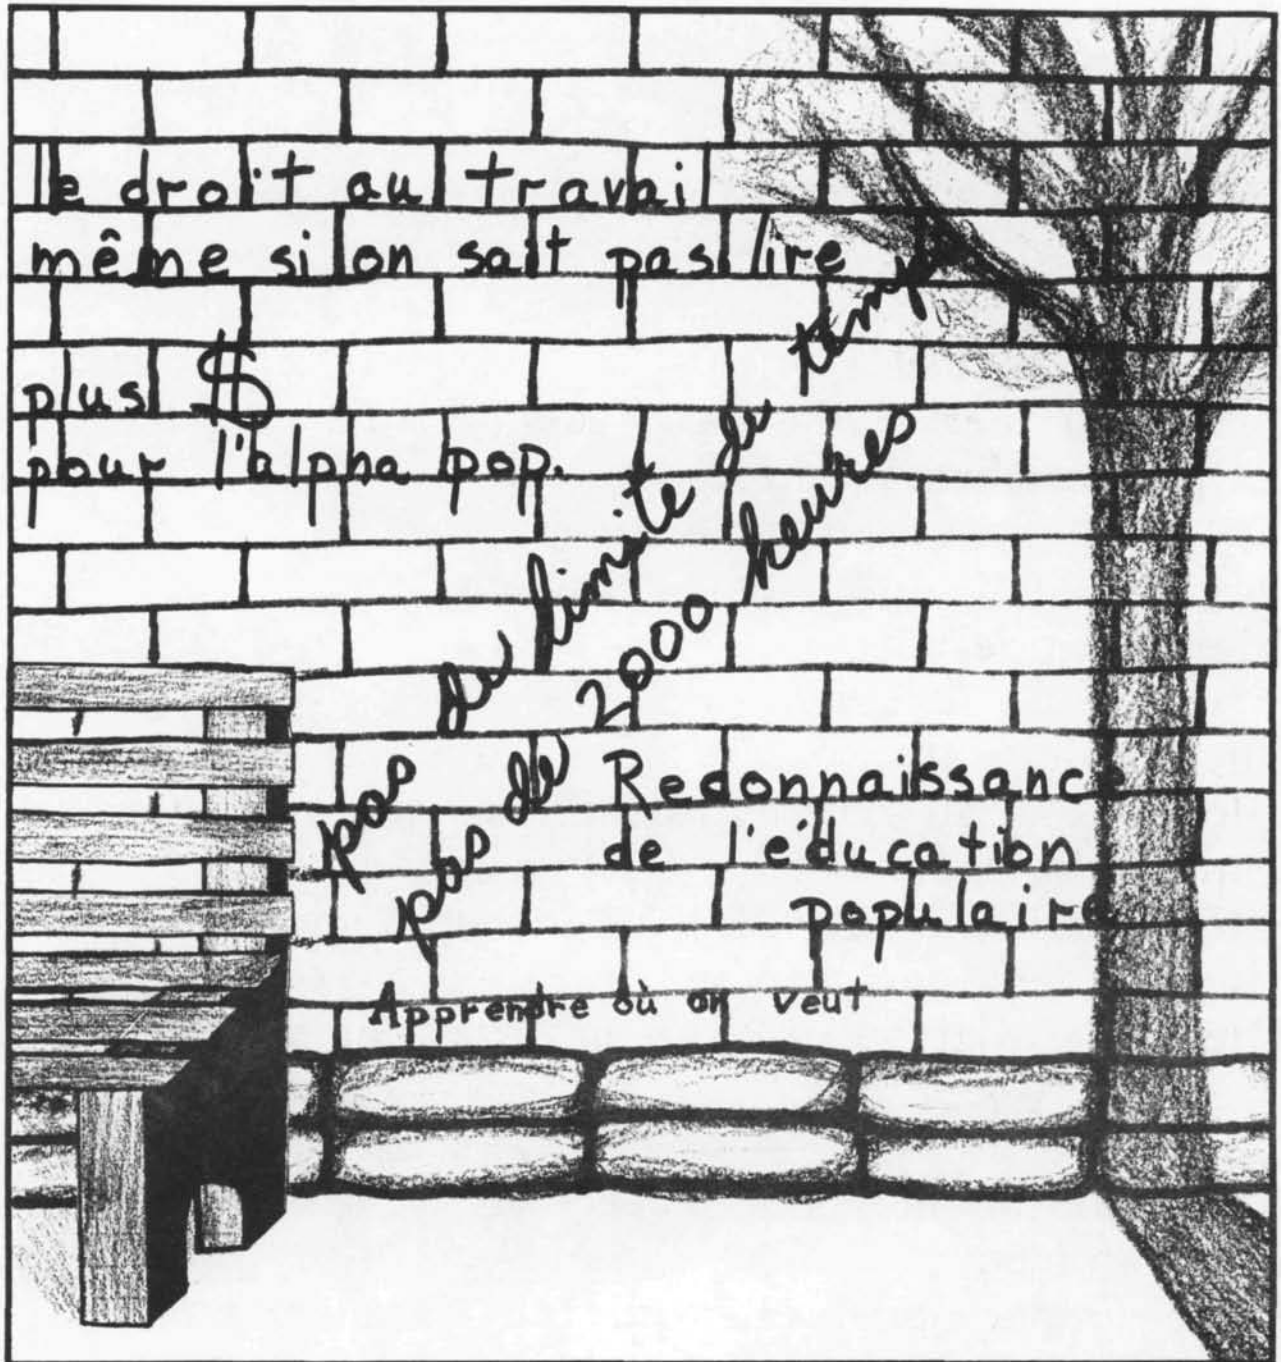 le droit au travail
même si on sait pas lire
plus $
pour l'alpha pop.
pas de limite de temps
pas de 2000 heures
Redonnaissance
de l'éducation
populaire
Apprendre où on veut